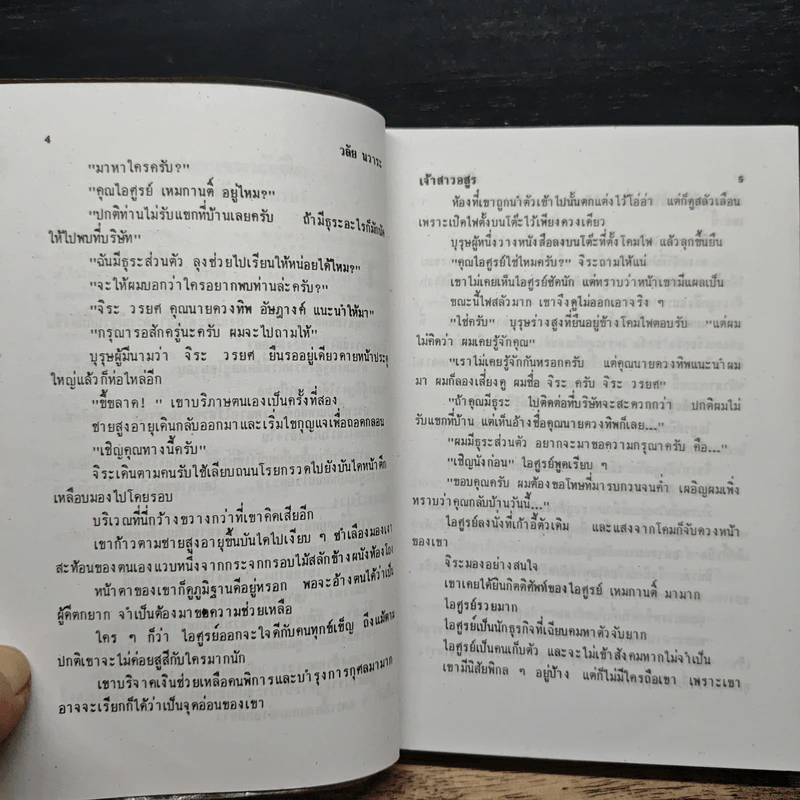 4
วลัย นวาระ
"มาหาใครครับ?"
"คุณไอศูรย์ เหมกานติ์ อยู่ไหม?"
"ปกติท่านไม่รับแขกที่บ้านเลยครับ ถ้ามีธุระอะไรก็มักนัด
ให้ไปพบที่บริษัท"
"ฉันมีธุระส่วนตัว ลุงช่วยไปเรียนให้หน่อยได้ไหม?"
"จะให้ผมบอกว่าใครอยากพบท่านล่ะครับ?"
"จิระ วรยศ คุณนายดวงทิพ อัษฎางค์ แนะนำให้มา"
"กรุณารอสักครู่นะครับ ผมจะไปถามให้"
บุรุษผู้มีนามว่า จิระ วรยศ ยืนรออยู่เดียวดายหน้าประตู
ใหญ่แล้วก็ห่อไหล่อีก
"ขี้ขลาด! " เขาบริภาษตนเองเป็นครั้งที่สอง
ชายสูงอายุเดินกลับออกมาและเริ่มไขกุญแจเพื่อถอดกลอน
"เชิญคุณทางนี้ครับ"
จิระเดินตามคนรับใช้เลียบถนนโรยกรวดไปยังบันไดหน้าตึก
เหลือบมองไปโดยรอบ
บริเวณที่นี่กว้างขวางกว่าที่เขาคิดเสียอีก
เขาก้าวตามชายสูงอายุขึ้นบันไดไปเงียบ ๆ ชำเลืองมองเงา
สะท้อนของตนเองแวบหนึ่งจากกระจกกรอบไม้สลักข้างผนังห้องโถง
หน้าตาของเขาก็ดูภูมิฐานดีอยู่หรอก พอจะอ้างตนได้ว่าเป็น
ผู้ดีตกยาก จำเป็นต้องมาขอความช่วยเหลือ
ใคร ๆ ก็ว่า ไอศูรย์ออกจะใจดีกับคนทุกข์เข็ญ ถึงแม้ตาม
ปกติเขาจะไม่ค่อยสูสีกับใครมากนัก
เขาบริจาคเงินช่วยเหลือคนพิการและบำรุงการกุศลมามาก
อาจจะเรียกก็ได้ว่าเป็นจุดอ่อนของเขา
เจ้าสาวอสูร
5
ห้องที่เขาถูกนำตัวเข้าไปนั้นตกแต่งไว้โอ่อ่า แต่ก็ดูสลัวเลือน
เพราะเปิดไฟตั้งบนโต๊ะไว้เพียงดวงเดียว
บุรุษผู้หนึ่งวางหนังสือลงบนโต๊ะที่ตั้งโคมไฟ แล้วลุกขึ้นยืน
"คุณไอศูรย์ใช่ไหมครับ?" จิระถามให้แน่
เขาไม่เคยเห็นไอศูรย์ชัดนัก แต่ทราบว่าหน้าเขามีแผลเป็น
ขณะนี้ไฟสลัวมาก เขาจึงดูไม่ออกเอาจริง ๆ
"ใช่ครับ" บุรุษร่างสูงที่ยืนอยู่ข้างโคมไฟตอบรับ "แต่ผม
ไม่คิดว่า ผมเคยรู้จักคุณ"
"เราไม่เคยรู้จักกันหรอกครับ แต่คุณนายดวงทิพแนะนำผม
มา ผมก็ลองเสี่ยงดู ผมชื่อ จิระ ครับ จิระ วรยศ"
"ถ้าคุณมีธุระ ไปติดต่อที่บริษัทจะสะดวกกว่า ปกติผมไม่
รับแขกที่บ้าน แต่เห็นอ้างชื่อคุณนายดวงทิพก็เลย..."
"ผมมีธุระส่วนตัว อยากจะมาขอความกรุณาครับ คือ..."
"เชิญนั่งก่อน" ไอศูรย์พูดเรียบ ๆ
"ขอบคุณครับ ผมต้องขอโทษที่มารบกวนจนค่ำ เผอิญผมเพิ่ง
ทราบว่าคุณกลับบ้านวันนี้..."
ไอศูรย์ลงนั่งที่เก้าอี้ตัวเดิม และแสงจากโคมก็จับดวงหน้า
ของเขา
จิระมองอย่างสนใจ
เขาเคยได้ยินกิตติศัพท์ของไอศูรย์ เหมกานติ์ มามาก
ไอศูรย์รวยมาก
ไอศูรย์เป็นนักธุรกิจที่เฉียบคมหาตัวจับยาก
ไอศูรย์เป็นคนเก็บตัว และจะไม่เข้าสังคมหากไม่จำเป็น
เขามีนิสัยพิกล ๆ อยู่บ้าง แต่ก็ไม่มีใครถือเขา เพราะเขา